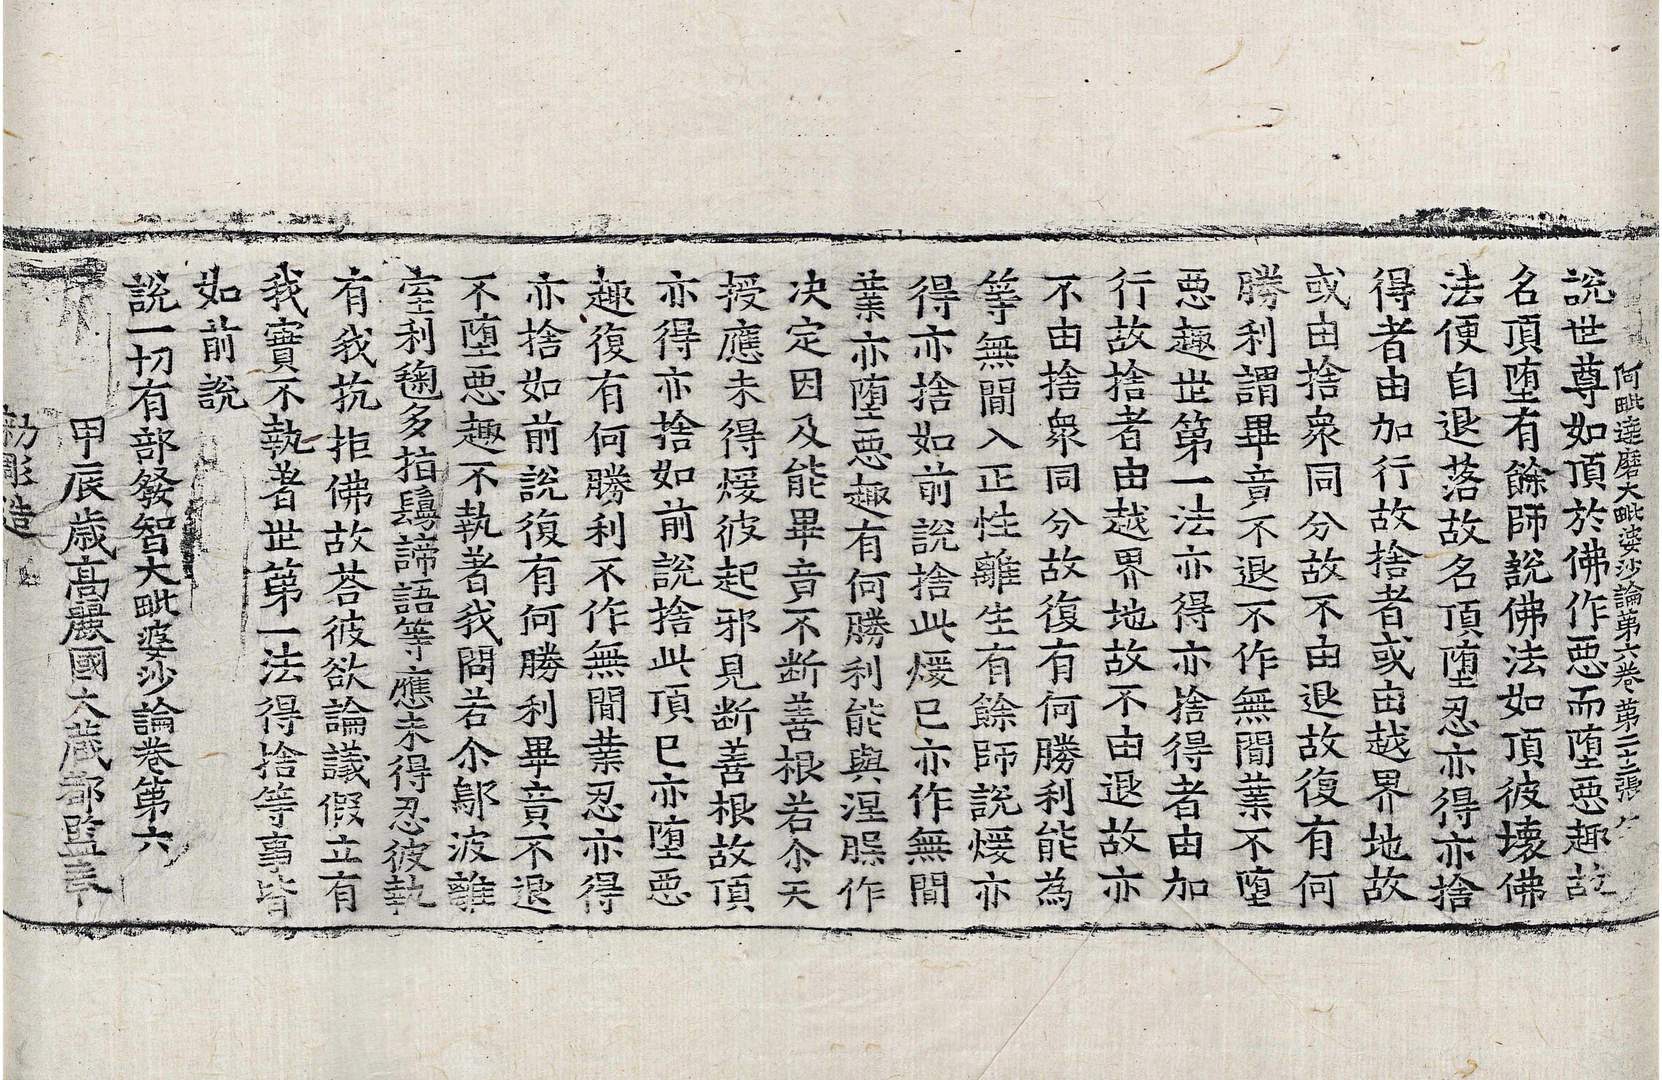 阿毗達磨大毗婆沙論第六卷 第二十二張
說世尊如頂於佛作惡而墮惡趣故
名頂墮有餘師說佛法如頂彼壞佛
法便自退落故名頂墮忍亦得亦捨
得者由加行故捨者或由越界地故
或由捨衆同分故不由退故復有何
勝利謂畢竟不退不作無間業不墮
惡趣世第一法亦得亦捨得者由加
行故捨者由越界地故不由退故亦
不由捨衆同分故復有何勝利能為
等無間入正性離生有餘師說煖亦
得亦捨如前說捨此煖已亦作無間
業亦墮惡趣有何勝利能與涅槃作
决定因及能畢竟不断善根若尒天
授應未得煖彼起邪見断善根故頂
亦得亦捨如前說捨此頂已亦墮惡
趣復有何勝利不作無間業忍亦得
亦捨如前說復有何勝利畢竟不退
不墮惡趣不執著我問若尒鄔波離
室利毱多指鬘諦語等應未得忍彼執
有我抗拒佛故荅彼欲論議假立有
我實不執著世第一法得捨等事皆
如前說
說一切有部發智大毗婆沙論卷第六
甲辰歲高麗國大藏都監奉
勑彫造